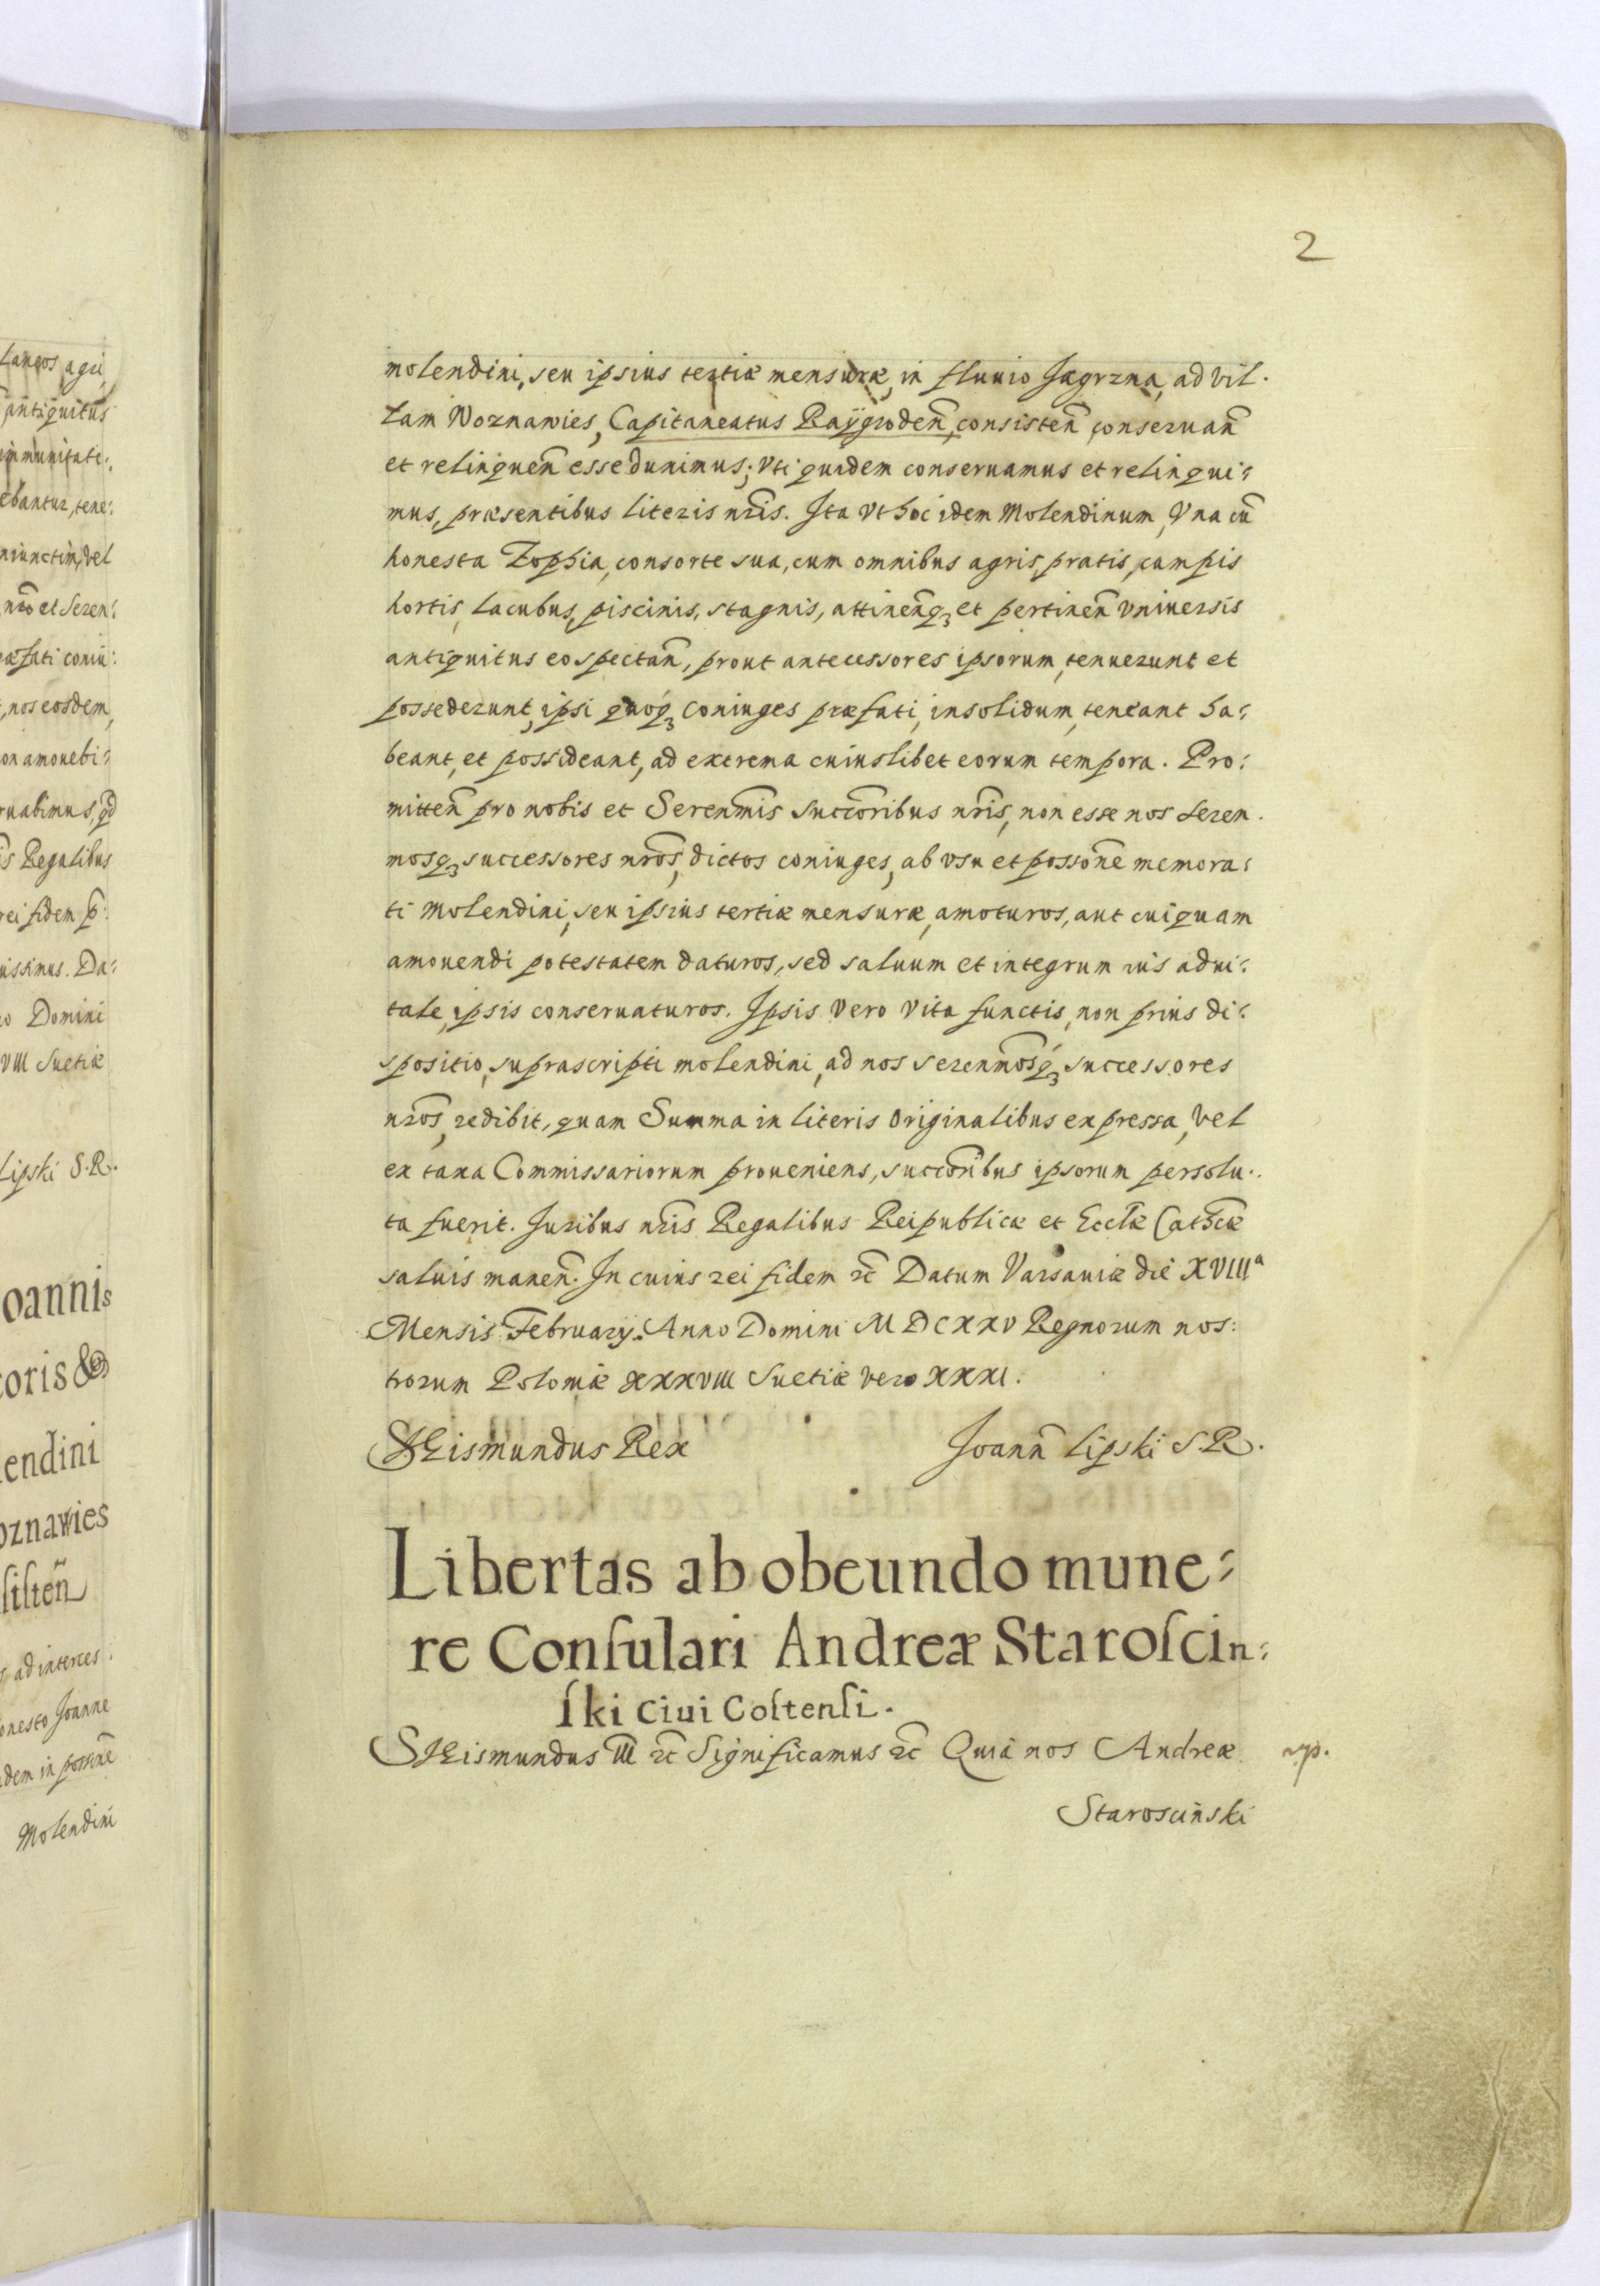 2
molendini, seu ipsius tertiæ mensuræ, in fluuio Jagrzna, ad vil-
lam Woznawies, Capitaneatus Raÿgroden̄, consisten̄ conseruan̄
et relinquen̄ esse duximus; Vti quidem conseruamus et relinqui-
mus, præsentibus literis nr̄is. Ita vt hoc idem Molendinum, Vna cū
honesta Zophia, consorte sua, cum omnibus agris, pratis, campis
hortis, lacubus, piscinis, stagnis, attinen̄q₃ et pertinen̄ vniuersis
antiquitus eo spectan̄, prout antecessores ipsorum, tenuerunt et
possederunt, ipsi quoq₃ coniuges præfati, in solidum, teneant ha-
beant, et possideant, ad extrema cuiuslibet eorum tempora. Pro-
mitten̄ pro nobis et Seren̄mis succ̄oribus nr̄is, non esse nos seren-
mosq₃ successores nr̄os, dictos coniuges, ab vsu et possōne memora-
ti Molendini, seu ipsius tertiæ mensuræ, amoturos, aut cuiquam
amouendi potestatem daturos, sed saluum et integrum ius adui-
tale, ipsis conseruaturos. Ipsis vero vita functis, non prius di-
spositio, suprascripti molendini, ad nos seren̄mosq₃ successores
nr̄os, redibit, quam Summa in literis originalibus expressa, vel
ex taxa Commissariorum proueniens, succ̄oribus ipsorum persolu-
ta fuerit. Juribus nr̄is Regalibus Reipublicæ et Eccl̄æ Cath̄cæ
saluis manen̄. In cuius rei fidem &c̄ Datum Varsauiæ die XVIIIᵃ
Mensis Februarij. Anno Domini MDCXXV Regnorum nos-
trorum Poloniæ XXXVIII Suetiæ vero XXXI.
Sigismundus Rex Joann̄ Lipski S.R.
Libertas ab obeundo mune-
re Conſulari Andreæ Staroſcin-
ſki ciui Coſtenſi.
Sigismundus III &c̄ Significamus &c̄ Quia nos Andreæ
Staroscinski